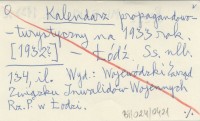 Kalendarz propagandowo-
-turystyczny na 1933 rok.
[1932?] – Łódź. Ss. nlb.
134, il. Wyd.: Wojewódzki Zarząd
Związku Inwalidów Wojennych
Rz. P. w Łodzi.